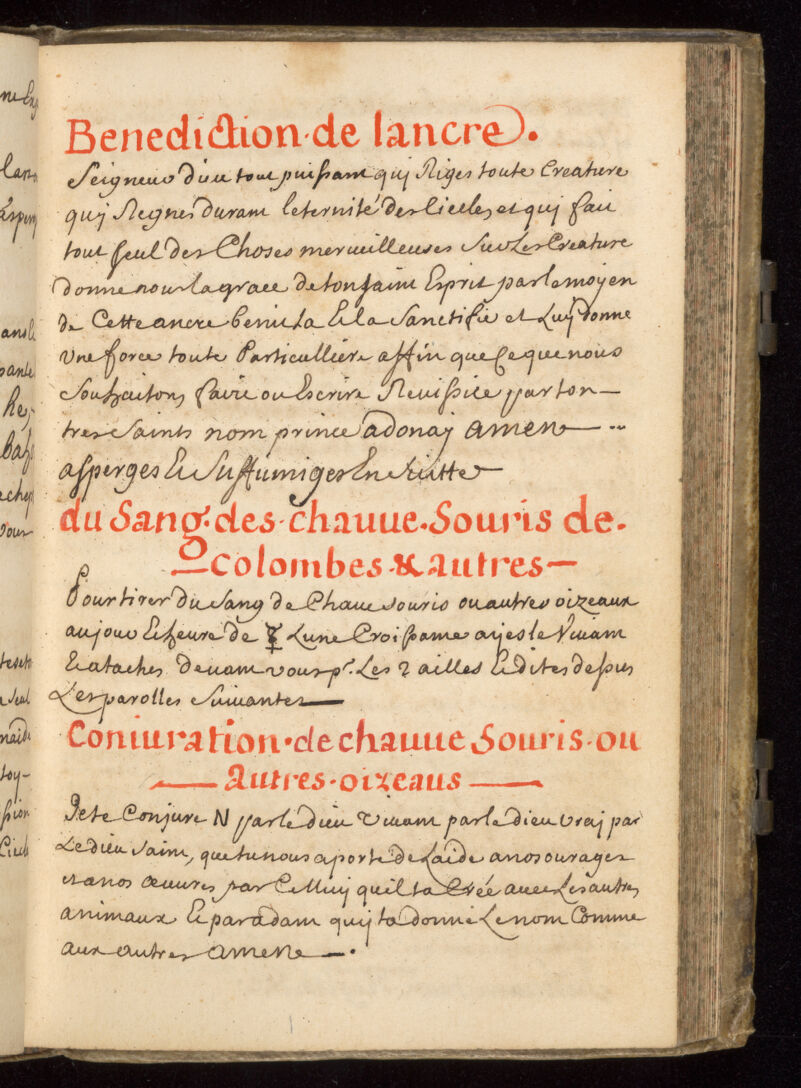 Benediction de lancre.
Seigneur dieu tout puissant quj Riges toute Creature
quj Regnes durant leternité des siecles et quj fait
tout seul des Choses merueilleuses sur Les Creature
donne nous la grace de ton saint Esprit par le moyen
de Cette ancre benis la Et la Sanctifie et Luy donne
Vne force toute Particulliere affin que Ce que nous
Souhaitons faire ou Escrire Reuissice par ton
tres Saints nom prince adonaj amen
asperges Et Suffumiger En suitte
du Sang des chauue Souris de
Colombes & autres
Pour tirer du sang de Chaue souris ou autres oizeaux
au jour Et heure de ☿ Lune Croissante ayes le Viuant
Et ataches deuant vous pr. Les 2 ailles Et dites dessus
Les parolles suiuantes
Coniuration de chauue Souris ou
autres oizeaus
Je te Conjure N par le dieu viuant par le dieu vraj par
Le dieu saint, que tu nous aporte de Laide a nos ourages
et a nos œuures par Celluij quil ta Creé auec Les autres
animaux Et par adam quij ta donné Le nom Comme
aux autres amen